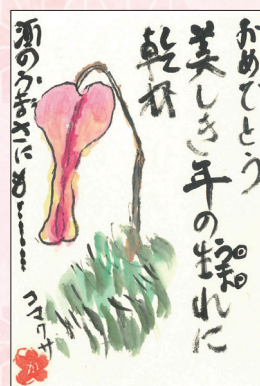 おめでとう
美しき年の生れに
乾杯
酒のうまさにも………
コマクサ